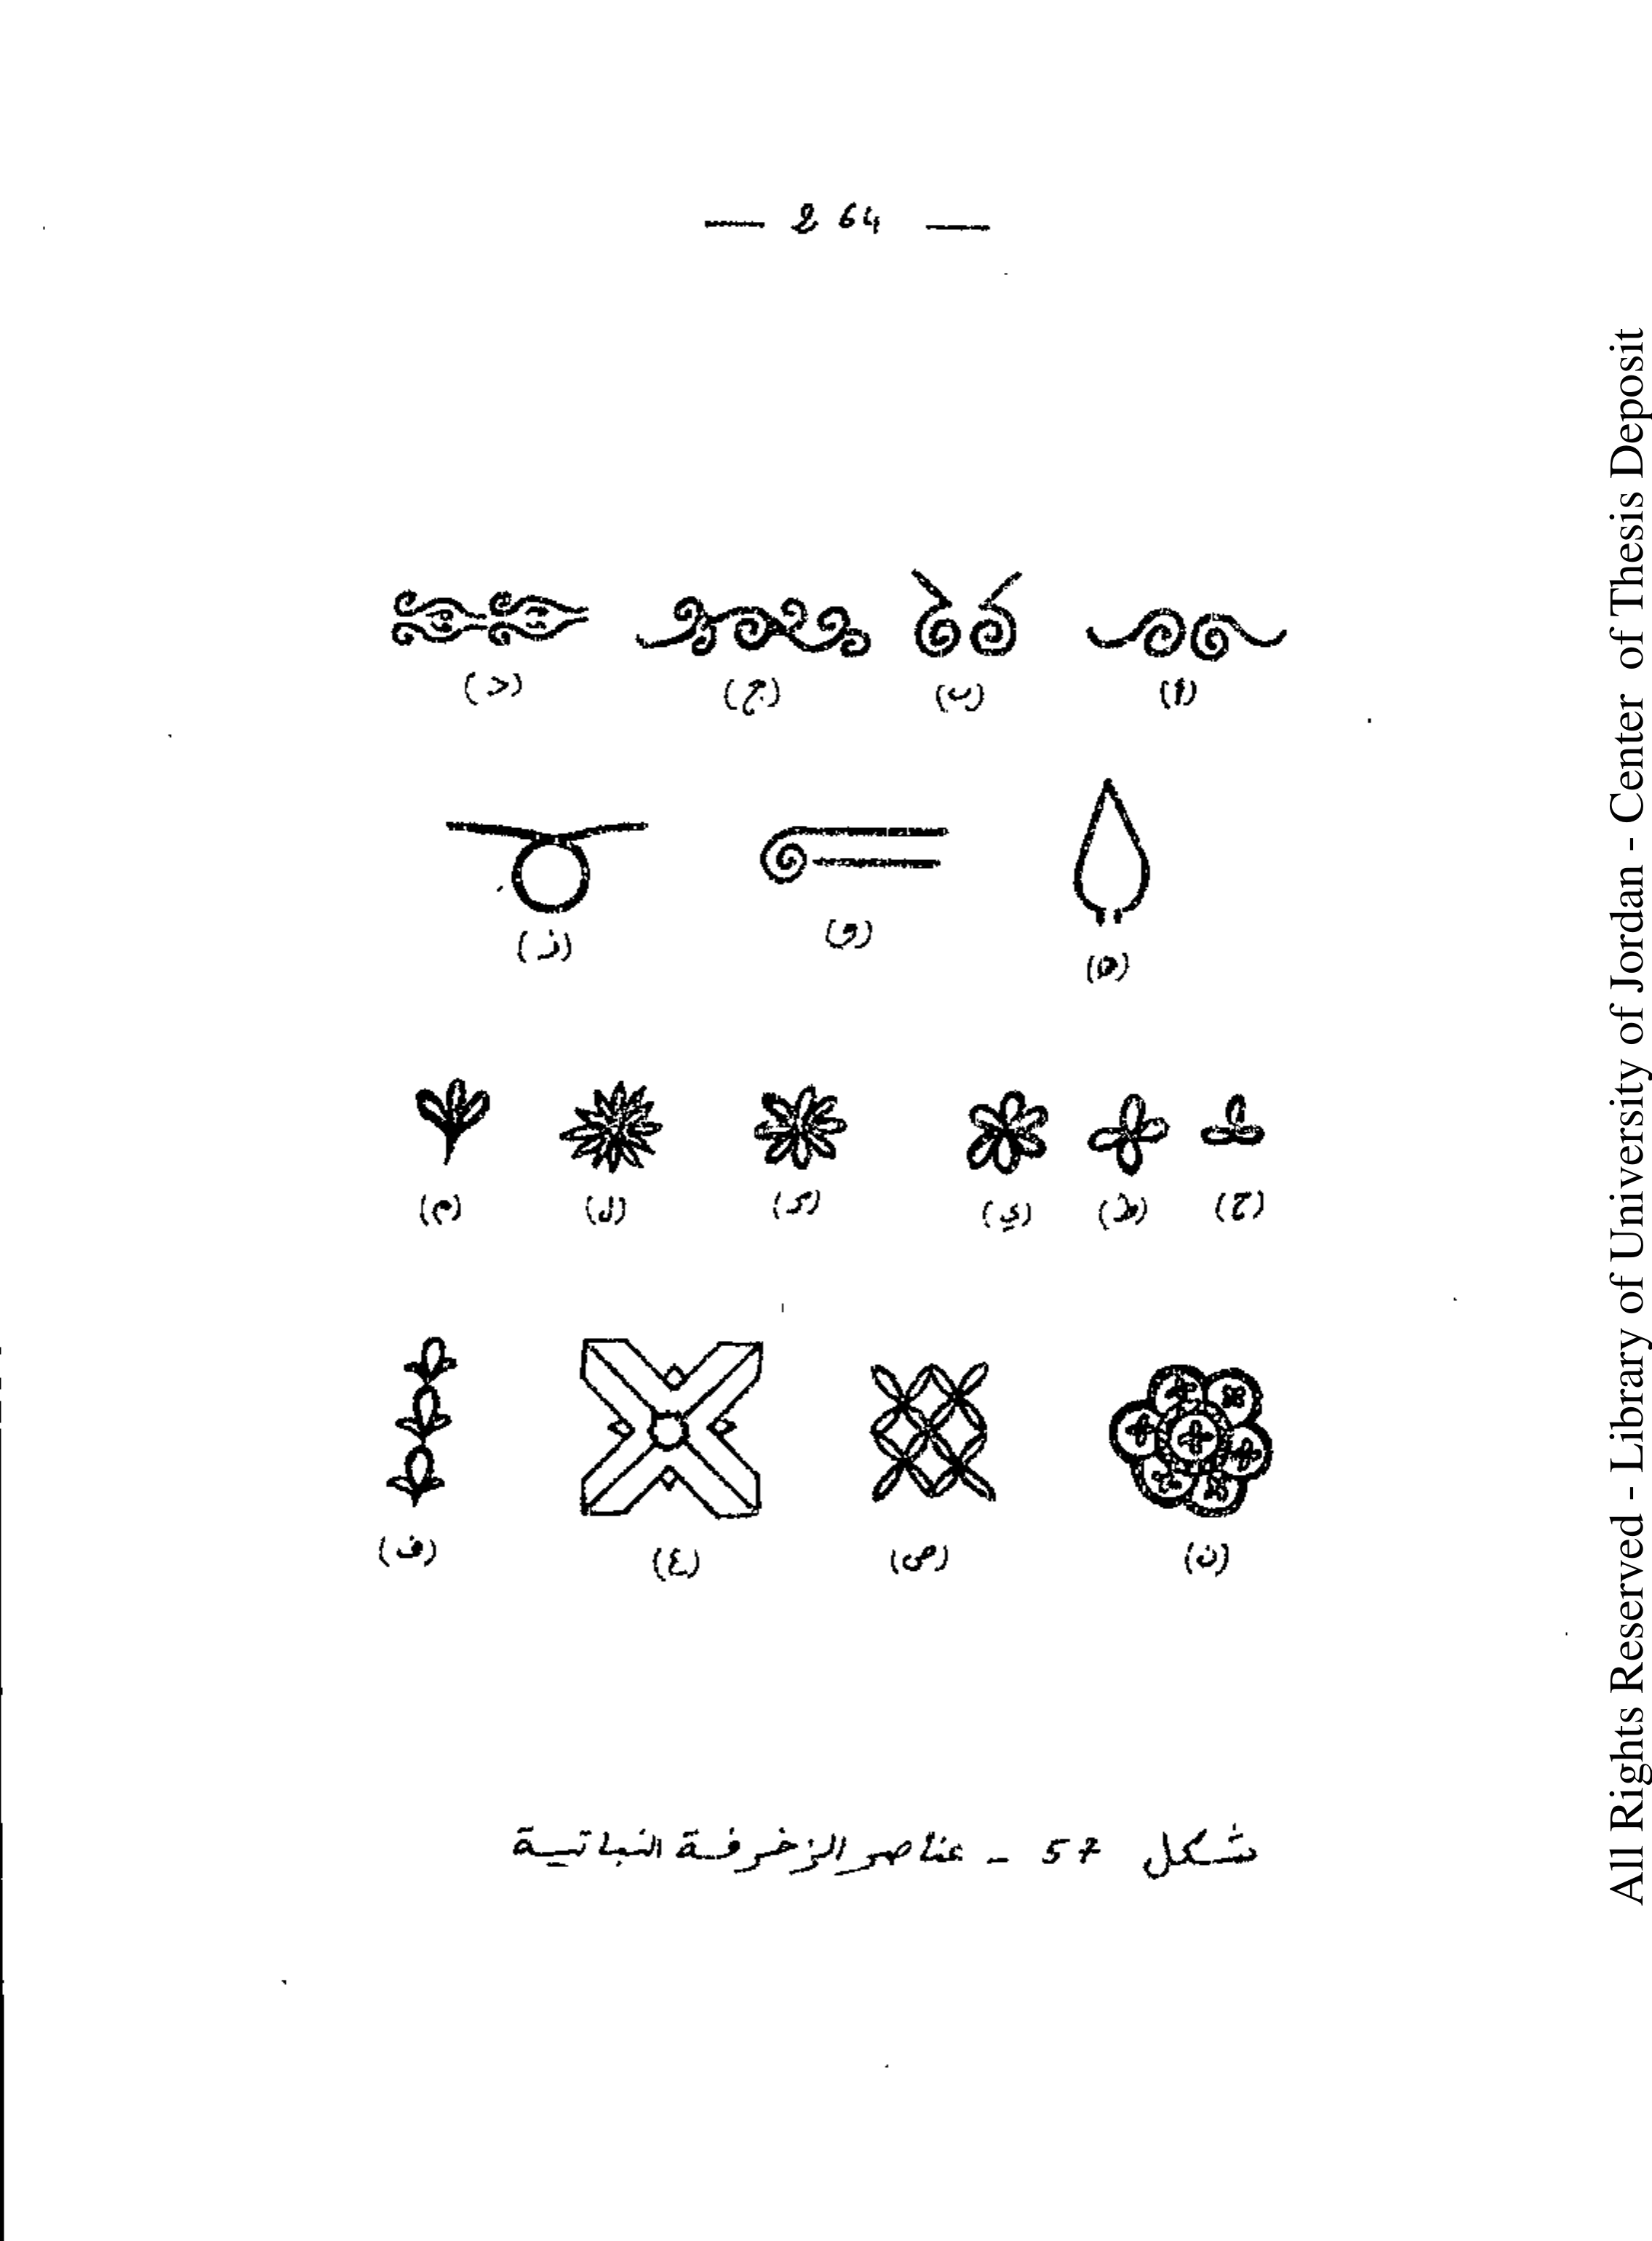 — 264 —
(أ) (ب) (ج) (د)
(ه) (و) (ز)
(ح) (ط) (ي) (ك) (ل) (م)
(ن) (ص) (ع) (ف)
شكل 57 - عناصر الزخرفة النباتية
All Rights Reserved - Library of University of Jordan - Center of Thesis Deposit